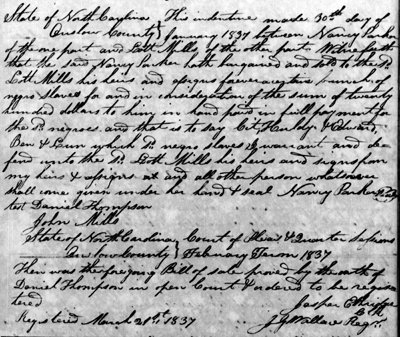 State of North Carolina } This indenture made 30th day of
Onslow County } January 1837 between Nancy Parker
of the one part and Lott Mills of the other part Witnesseth
that the said Nancy Parker hath bargained and sold to the sd
Lott Mills his heirs and assigns forever a
negro slaves for and in consideration of the sum of twenty
hundred dollars to him in hand paid in full payment for
the sd negroes and that is to say Hardy & Edward
Ben & which sd negro slaves I warrant and de
fend unto the sd Lott Mills his heirs and assigns from
my heirs & assigns at and all other person whatsoever
shall come given under her hand & seal Nancy Parker
test Daniel Thompson
John Mills
State of North Carolina } Court of Pleas & Quarter Sessions
Onslow County } February Term 1837
Then was the foregoing Bill of sale proved by the oath of
Daniel Thompson in open Court & ordered to be regis
tered
Jasper Etheridge
Registered March 21st 1837 J Wallace Regr.